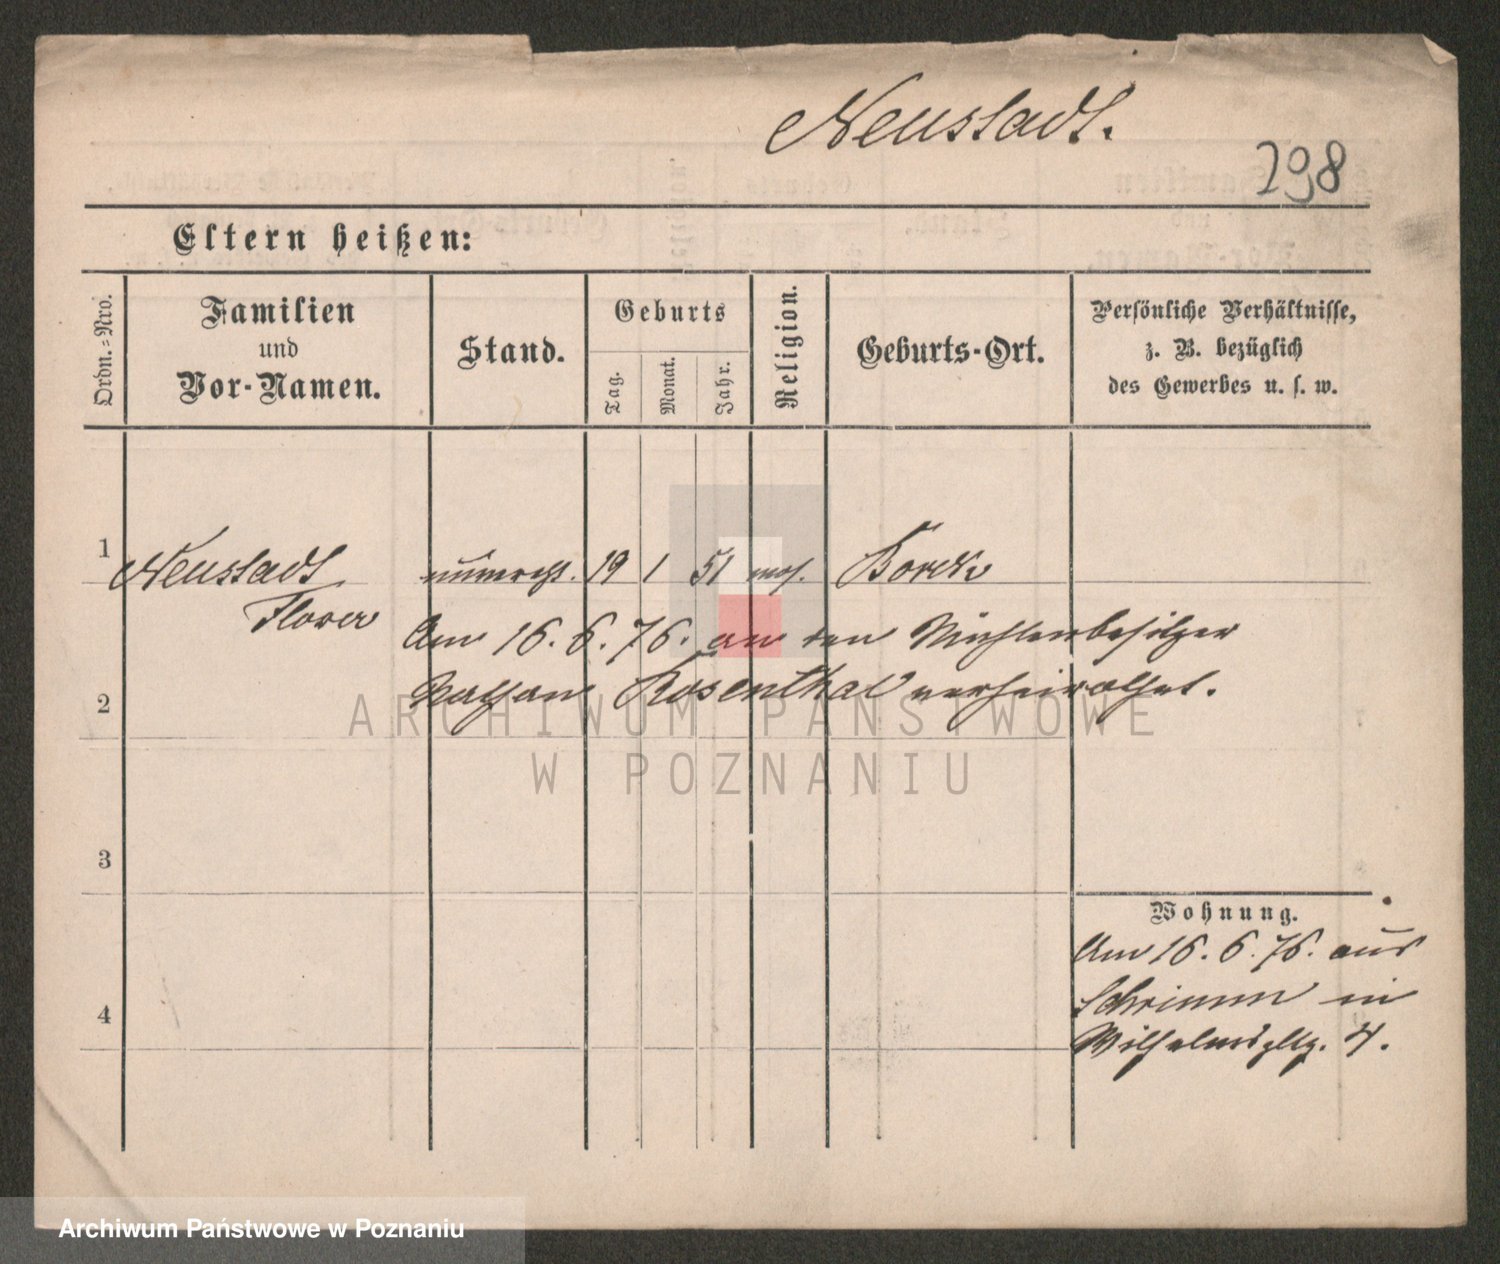 Neustadt.
298
Eltern heißen:
Ordn.=Nro.
Familien
und
Vor-Namen.
Stand.
Geburts
Tag.
Monat.
Jahr.
Religion.
Geburts-Ort.
Persönliche Verhältnisse,
z. B. bezüglich
des Gewerbes u. s. w.
1
Neustadt unvereh. 19 1 51 mos. Borek
Flora
Am 16. 6. 76. an den Mühlenbesitzer
2
Nathan Rosenthal verheirathet.
ARCHIWUM PAŃSTWOWE
W POZNANIU
3
Wohnung.
Am 16. 6. 76. aus
4
Schrimm in
Wilhelmspltz. 4.
Archiwum Państwowe w Poznaniu